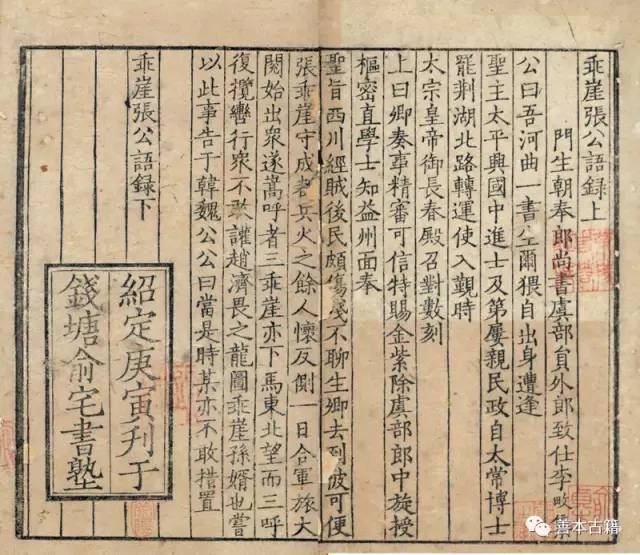 乖崖張公語録上
門生朝奉郎尚書虞部員外郎致仕李畋
公曰吾河曲一書生爾猥自出身遭逢
聖主太平興國中進士及第屢親民政自太常博士
罷荆湖北路轉運使入覲時
太宗皇帝御長春殿召對數刻
上曰卿奏事精審可信特賜金紫除虞部郎中旋授
樞密直學士知益州面奉
聖旨西川經賊後民頗傷殘不聊生卿去到彼可便
張乖崖守成都兵火之餘人懷反側一日合軍旅大
閱始出衆遂嵩呼者三乖崖亦下馬東北望而三呼
復攬轡行衆不敢讙趙濟畏之龍圖乖崖孫婿也嘗
以此事告于韓魏公公曰當是時某亦不敢措置
乖崖張公語録下
紹定庚寅刋于
錢塘俞宅書塾
善本古籍